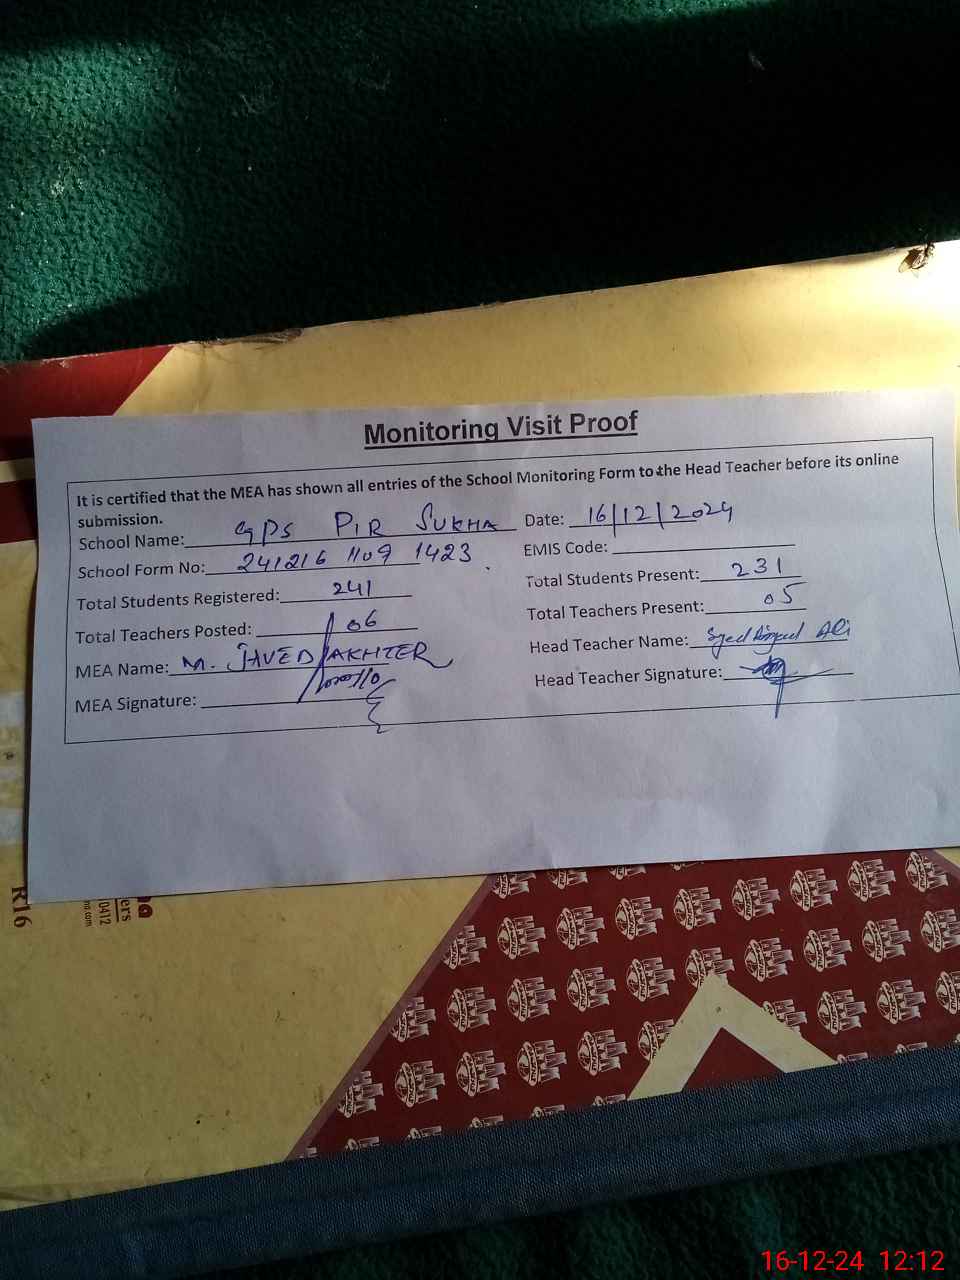 Monitoring Visit Proof
It is certified that the MEA has shown all entries of the School Monitoring Form to the Head Teacher before its online
submission.
School Name: GPS PIR SUKHA Date: 16/12/2024
School Form No: 241216 1109 1423 EMIS Code:
Total Students Registered: 241 Total Students Present: 231
Total Teachers Posted: 06 Total Teachers Present: 05
MEA Name: M. JAVED AKHTER Head Teacher Name: Syed Ali
MEA Signature: Head Teacher Signature:
R16
ers
0412
16-12-24 12:12